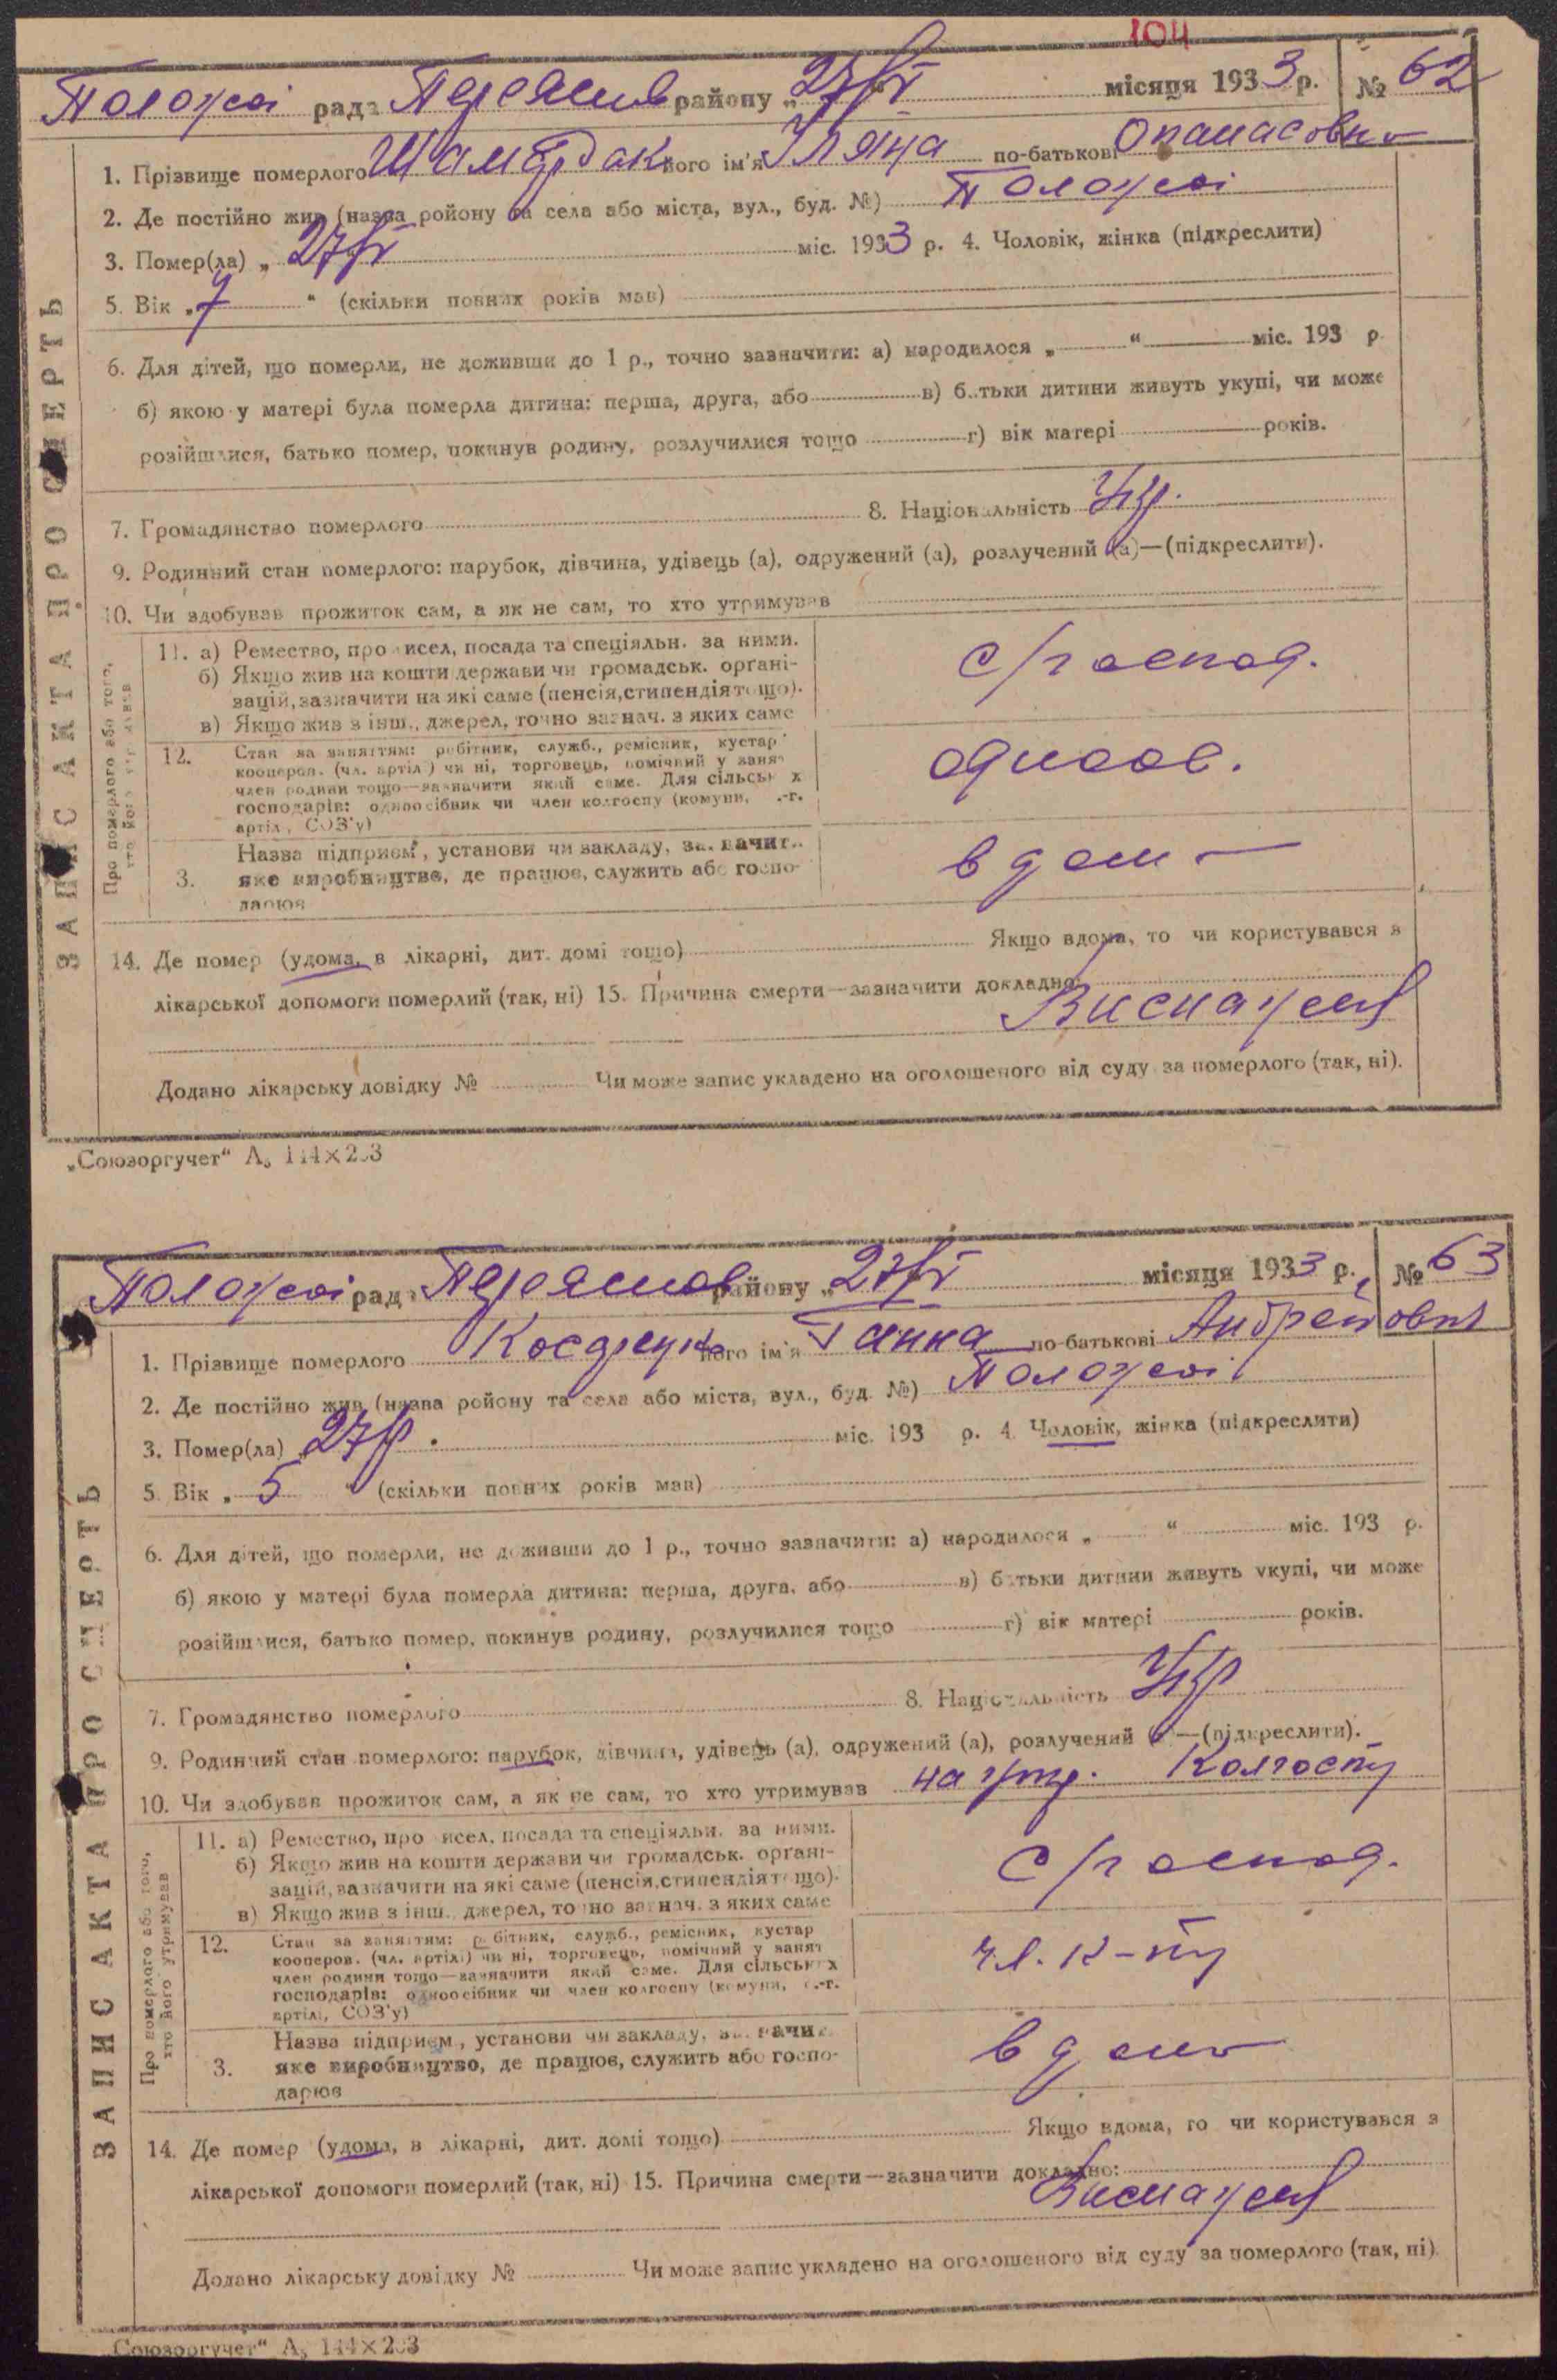 104
Положсі рада Переяслов району „ 27/VI місяця 1933 р. № 62
1. Прізвище померлого Шамардак його ім'я Уляна по-батькові Опанасовн
2. Де постійно жив (назва ройону та села або міста, вул., буд. №) Положсі
3. Помер(ла) „ 27/VI міс. 1933 р. 4. Чоловік, жінка (підкреслити)
5. Вік „ 7 “ (скільки повних років мав)
6. Для дітей, що померли, не доживши до 1 р., точно зазначити: а) народилося „ “ міс. 193 р.
б) якою у матері була померла дитина: перша, друга, або в) батьки дитини живуть укупі, чи може
розійшлися, батько помер, покинув родину, розлучилися тощо г) вік матері років.
7. Громадянство померлого 8. Національність Укр.
9. Родинний стан померлого: парубок, дівчина, удівець (а), одружений (а), розлучений (а)—(підкреслити).
10. Чи здобував прожиток сам, а як не сам, то хто утримував
ЗАПИС АКТА ПРО СМЕРТЬ
Про померлого або того,
хто його утримував
11. а) Ремество, промисел, посада та спеціяльн. за ними.
б) Якщо жив на кошти держави чи громадськ. органі-
зацій, зазначити на які саме (пенсія, стипендія тощо).
в) Якщо жив з інш., джерел, точно зазнач. з яких саме
с/господ.
12. Стан за заняттям: робітник, служб., ремісник, кустар
кооперов. (чл. артілі) чи ні, торговець, помічний у занят
член родини тощо—зазначити який саме. Для сільськ х
господарів: одноосібник чи член колгоспу (комуни, с.-г.
артілі, СОЗ'у)
одноос.
3. Назва підприєм, установи чи закладу, зазначит.
яке виробництво, де працює, служить або госпо-
дарює
вдома
14. Де помер (удома, в лікарні, дит. домі тощо) Якщо вдома, то чи користувався з
лікарської допомоги померлий (так, ні) 15. Причина смерти—зазначити докладно:
Виснажен
Додано лікарську довідку № Чи може запис укладено на оголошеного від суду за померлого (так, ні).
„Союзоргучет“ А₅ 144×203
Положсі рада Переяслов району „ 27/VI місяця 1933 р. № 63
1. Прізвище померлого його ім'я Ганна по-батькові Андрейовн
2. Де постійно жив (назва ройону та села або міста, вул., буд. №) Положсі
3. Помер(ла) „ 27 міс. 193 р. 4. Чоловік, жінка (підкреслити)
5. Вік „ 5 “ (скільки повних років мав)
6. Для дітей, що померли, не доживши до 1 р., точно зазначити: а) народилося „ “ міс. 193 р.
б) якою у матері була померла дитина: перша, друга, або в) батьки дитини живуть укупі, чи може
розійшлися, батько помер, покинув родину, розлучилися тощо г) вік матері років.
7. Громадянство померлого 8. Національність Укр
9. Родинний стан померлого: парубок, дівчина, удівець (а), одружений (а), розлучений (а)—(підкреслити).
10. Чи здобував прожиток сам, а як не сам, то хто утримував на утр. Колгоспу
ЗАПИС АКТА ПРО СМЕРТЬ
Про померлого або того,
хто його утримував
11. а) Ремество, промисел, посада та спеціяльн. за ними.
б) Якщо жив на кошти держави чи громадськ. органі-
зацій, зазначити на які саме (пенсія, стипендія тощо).
в) Якщо жив з інш., джерел, точно зазнач. з яких саме
с/господ.
12. Стан за заняттям: робітник, служб., ремісник, кустар
кооперов. (чл. артілі) чи ні, торговець, помічний у занят
член родини тощо—зазначити який саме. Для сільськ х
господарів: одноосібник чи член колгоспу (комуни, с.-г.
артілі, СОЗ'у)
чл. к-пу
3. Назва підприєм, установи чи закладу, зазначит.
яке виробництво, де працює, служить або госпо-
дарює
вдома
14. Де помер (удома, в лікарні, дит. домі тощо) Якщо вдома, то чи користувався з
лікарської допомоги померлий (так, ні) 15. Причина смерти—зазначити докладно:
Виснажен
Додано лікарську довідку № Чи може запис укладено на оголошеного від суду за померлого (так, ні).
„Союзоргучет“ А₅ 144×203